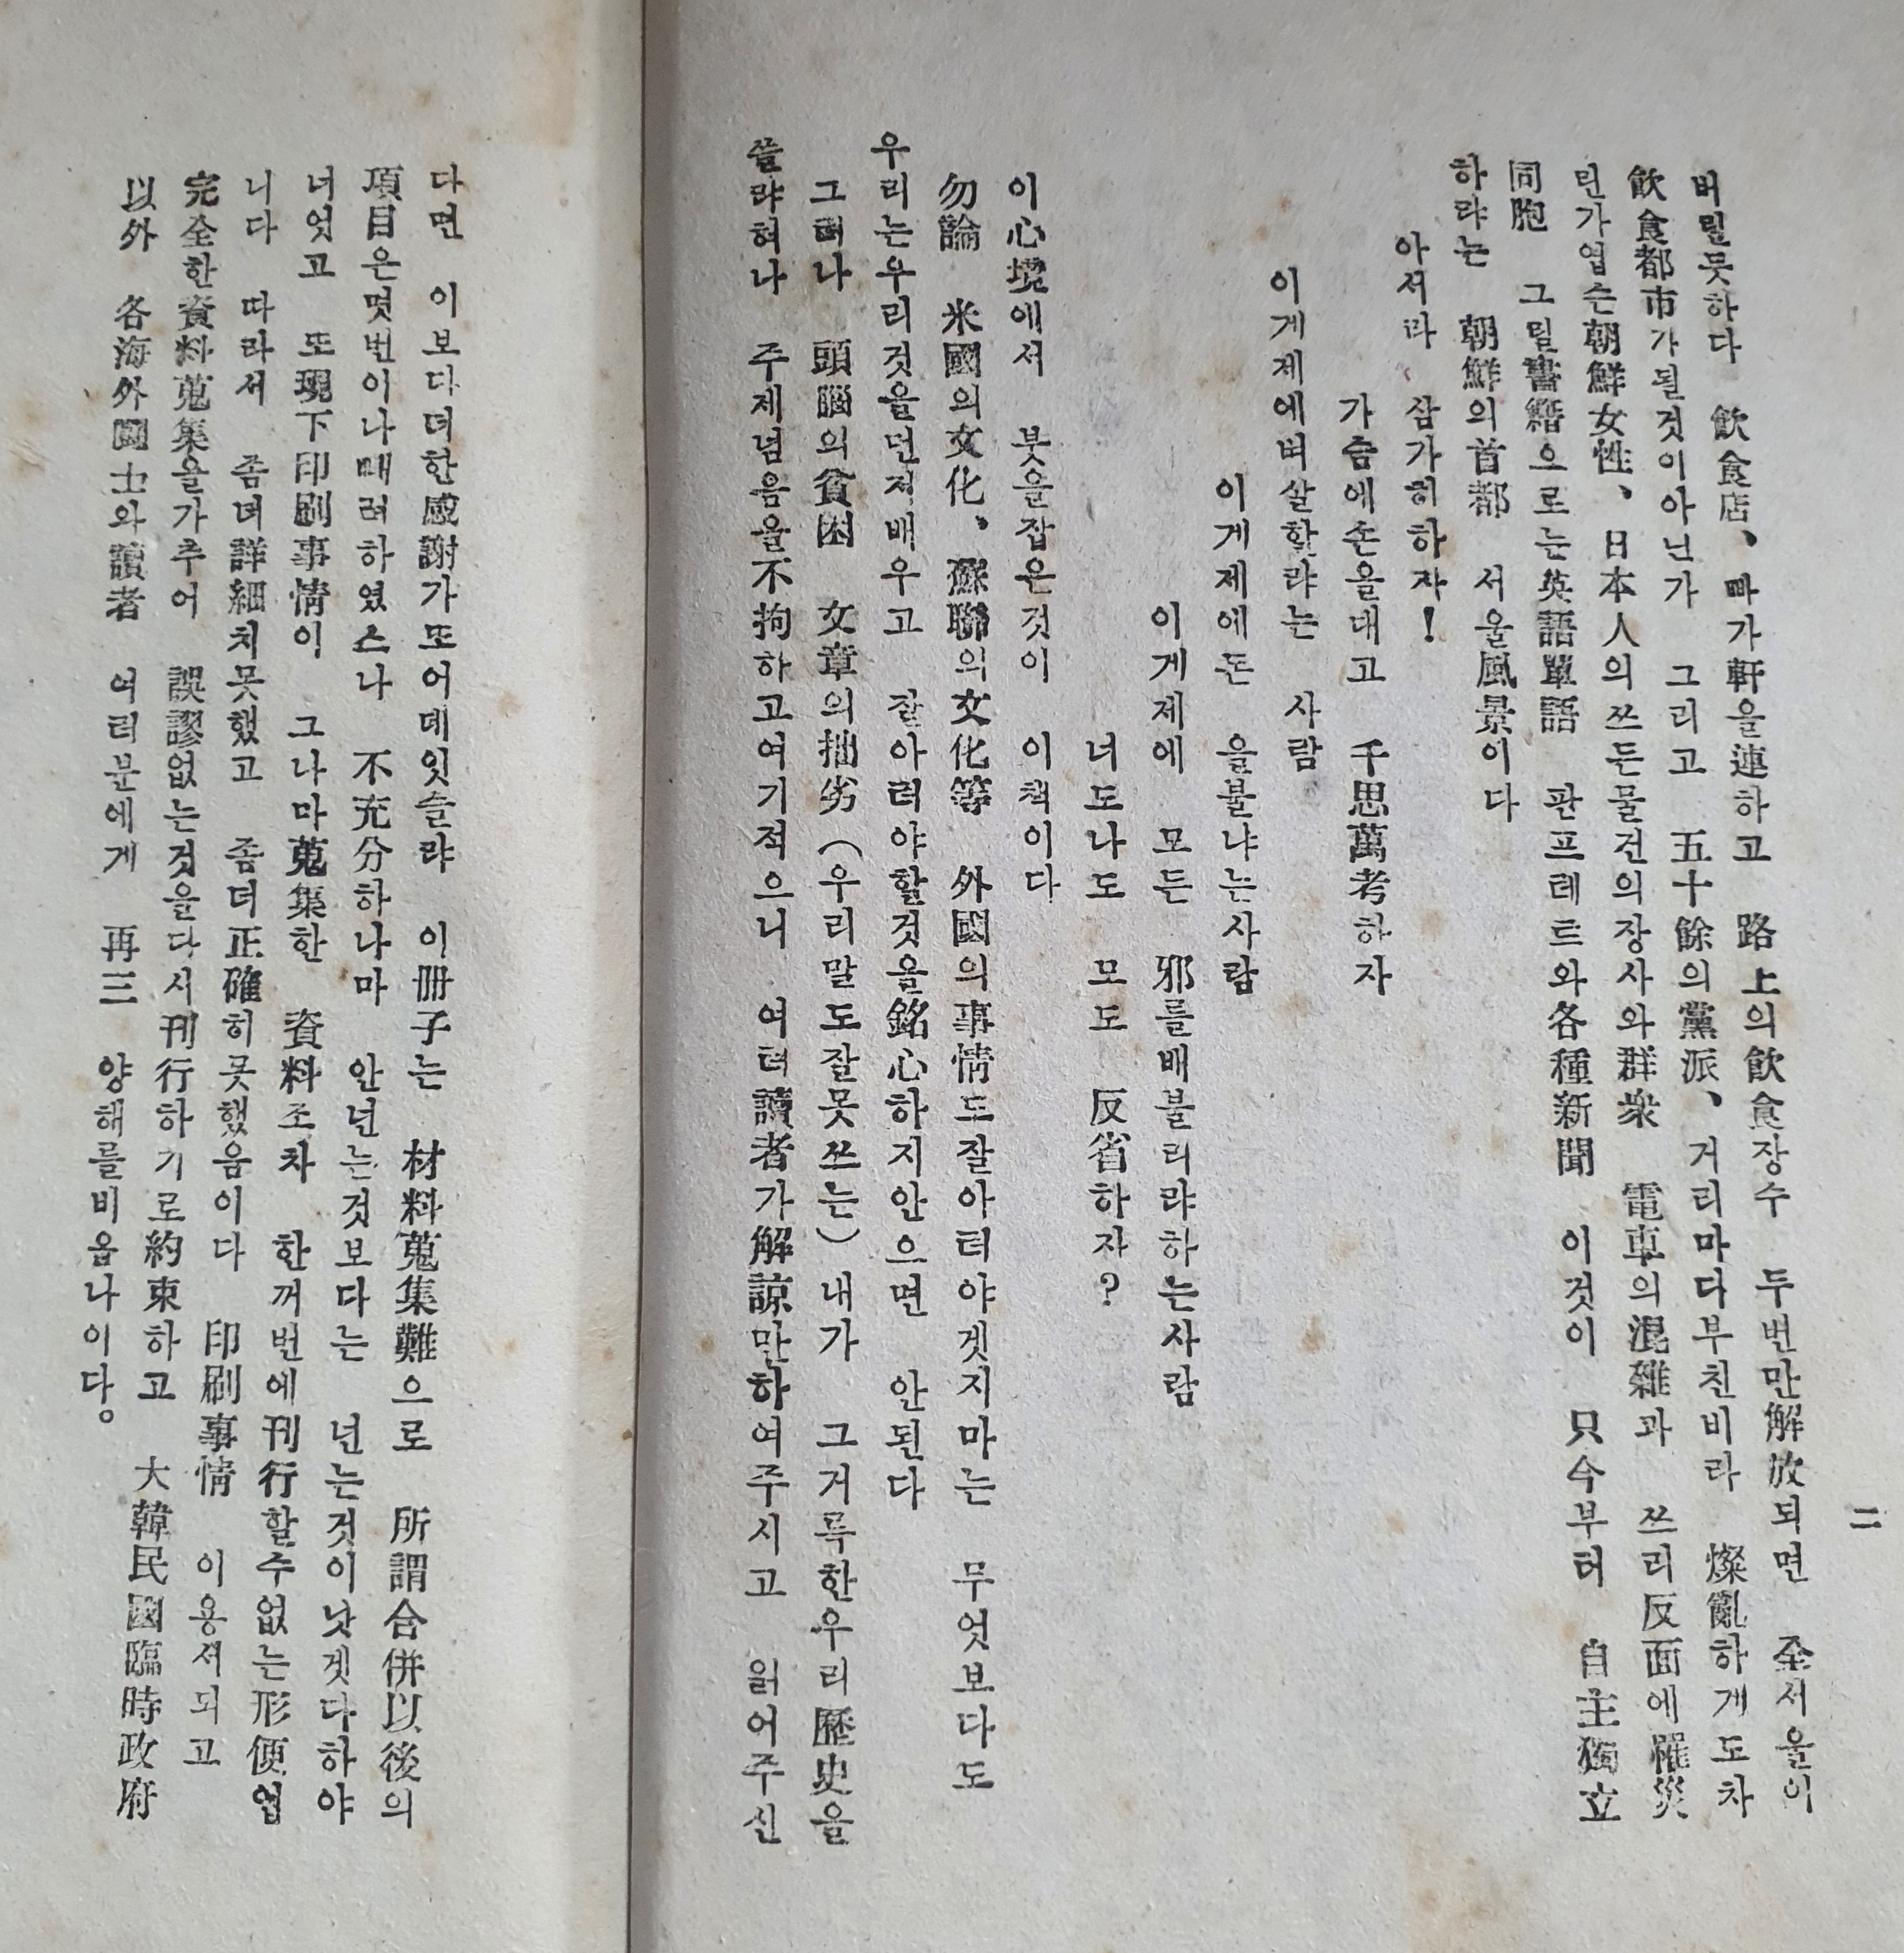 二
버릴듯하다 飮食店、빠가軒을連하고 路上의飮食장수 두번만解放되면 全서울이
飮食都市가될것이아닌가 그리고 五十餘의黨派、거리마다부친비라 燦亂하게도차
린가엽슨朝鮮女性、日本人의쓰든물건의장사와群衆 電車의混雜과 쓰리反面에罹災
同胞 그릴書籍으로는英語單語 판프레트와各種新聞 이것이 只今부터 自主獨立
하랴는 朝鮮의首都 서울風景이다
아서라 삼가히하자!
가슴에손을대고 千思萬考하자
이게제에벼살할랴는 사람
이게제에돈 을불냐는사람
이게제에 모든 邪를배불리랴하는사람
너도나도 모도 反省하자?
이心境에서 붓을잡은것이 이책이다
勿論 米國의文化、蘇聯의文化等 外國의事情도잘아러야겟지마는 무엇보다도
우리는우리것을먼저배우고 잘아러야할것을銘心하지안으면 안된다
그러나 頭腦의貧困 文章의拙劣(우리말도잘못쓰는)내가 그거룩한우리歷史을
쓸랴혀나 주제넘음을不拘하고여기적으니 여러讀者가解諒만하여주시고 읽어주신
다면 이보다더한感謝가또어데잇슬랴 이冊子는 材料蒐集難으로 所謂合併以後의
項目은멧번이나빼려하였스나 不充分하나마 안넌는것보다는 넌는것이낫겟다하야
너엇고 또現下印刷事情이 그나마蒐集한 資料조차 한꺼번에刊行할수없는形便엽
니다 따라서 좀더詳細치못했고 좀더正確히못했음이다 印刷事情 이용셔되고
完全한資料蒐集을가추어 誤謬없는것을다시刊行하기로約束하고 大韓民國臨時政府
以外 各海外國士와讀者 여러분에게 再三 양해를비옵나이다。